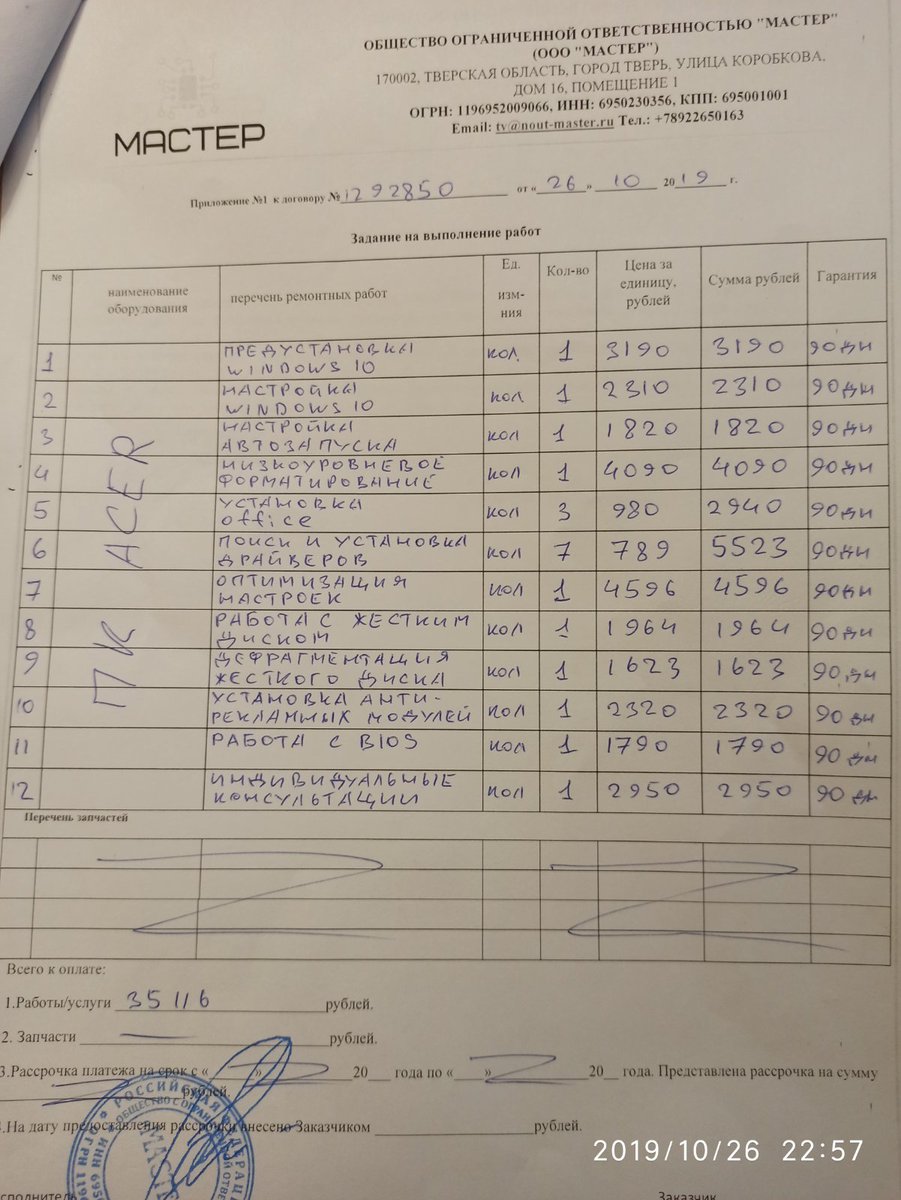 ОБЩЕСТВО ОГРАНИЧЕННОЙ ОТВЕТСТВЕННОСТЬЮ "МАСТЕР"
(ООО "МАСТЕР")
170002, ТВЕРСКАЯ ОБЛАСТЬ, ГОРОД ТВЕРЬ, УЛИЦА КОРОБКОВА,
ДОМ 16, ПОМЕЩЕНИЕ 1
ОГРН: 1196952009066, ИНН: 6950230356, КПП: 695001001
Email: tv@nout-master.ru Тел.: +78922650163
МАСТЕР
Приложение №1 к договору № 1292850 от « 26 » 10 2019 г.
Задание на выполнение работ
№ наименование оборудования перечень ремонтных работ Ед. изм-ния Кол-во Цена за единицу, рублей Сумма рублей Гарантия
ПК ACER
1 ПРЕДУСТАНОВКА WINDOWS 10 кол. 1 3190 3190 90 дн
2 НАСТРОЙКА WINDOWS 10 кол 1 2310 2310 90 дн
3 НАСТРОЙКА АВТОЗАПУСКА кол 1 1820 1820 90 дн
4 НИЗКОУРОВНЕВОЕ ФОРМАТИРОВАНИЕ кол 1 4090 4090 90 дн
5 УСТАНОВКА office кол 3 980 2940 90 дн
6 ПОИСК И УСТАНОВКА ДРАЙВЕРОВ кол 7 789 5523 90 дн
7 ОПТИМИЗАЦИЯ НАСТРОЕК кол 1 4596 4596 90 дн
8 РАБОТА С ЖЕСТКИМ ДИСКОМ кол 1 1964 1964 90 дн
9 ДЕФРАГМЕНТАЦИЯ ЖЕСТКОГО ДИСКА кол 1 1623 1623 90 дн
10 УСТАНОВКА АНТИ-РЕКЛАМНЫХ МОДУЛЕЙ кол 1 2320 2320 90 дн
11 РАБОТА С BIOS кол 1 1790 1790 90 дн
12 ИНДИВИДУАЛЬНЫЕ КОНСУЛЬТАЦИИ кол 1 2950 2950 90 дн
Перечень запчастей
Всего к оплате:
1.Работы/услуги 35116 рублей.
2. Запчасти рублей.
3.Рассрочка платежа на срок с « » 20 года по « » 20 года. Представлена рассрочка на сумму
рублей.
.На дату предоставления рассрочки внесено Заказчиком рублей.
РОССИЙСКАЯ ФЕДЕРАЦИ
ОБЩЕСТВО С ОГРАНИЧЕННОЙ ОТВЕ
2019/10/26 22:57
сполнитель Заказчик